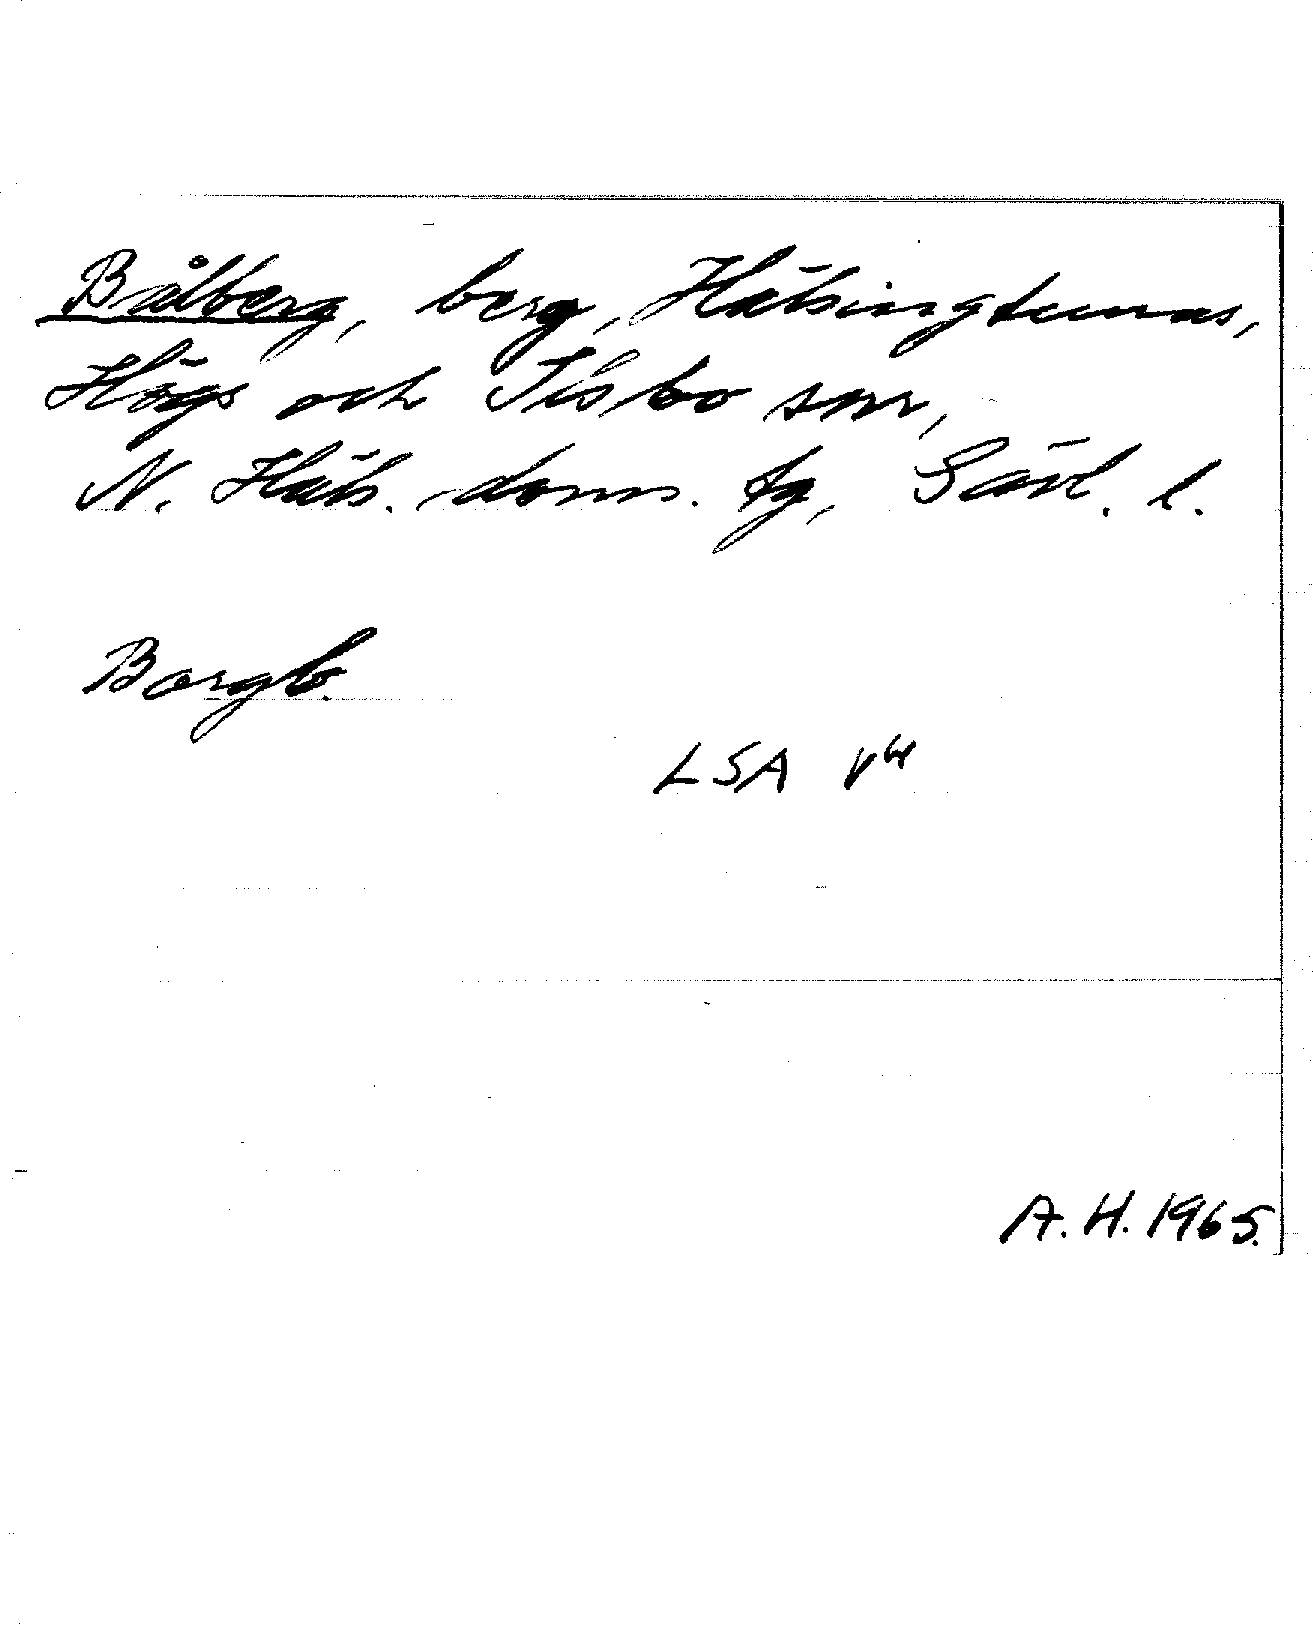 Bålberg, berg, Hälsingtunas,
Högs och Ilsbo snr,
N. Häls. doms. tg, Gävl. l.
Borgb.
LSA V 4
A. H. 1965.